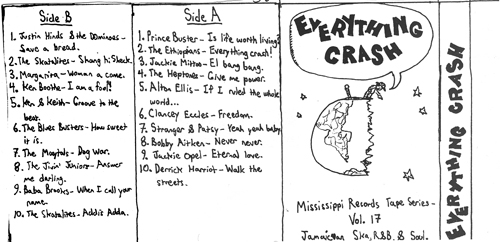 Side B
1. Justin Hinds & the Dominoes -
Save a bread.
2. The Skatalites - Shang hi Sheck.
3. Margarita - Woman a come.
4. Ken Boothe - I am a fool!
5. Ken & Keith - Groove to the
beat.
6. The Blues Busters - How sweet
it is.
7. The Maytals - Dog War.
8. The Jivin' Juniors - Answer
me darling.
9. Baba Brooks - When I call your
name.
10. The Skatalites - Addis Adda.
Side A
1. Prince Buster - Is life worth living?
2. The Ethiopians - Everything crash!
3. Jackie Mittoo - El bang bang.
4. The Heptones - Give me power.
5. Alton Ellis - If I ruled the whole
world...
6. Clancey Eccles - Freedom.
7. Stranger & Patsy - Yeah yeah baby.
8. Bobby Aitken - Never never.
9. Jackie Opel - Eternal love.
10. Derrick Harriot - Walk the
streets.
EVERYTHING
CRASH
Mississippi Records Tape Series -
Vol. 17
Jamaican Ska, R&B, & Soul.
EVERYTHING CRASH